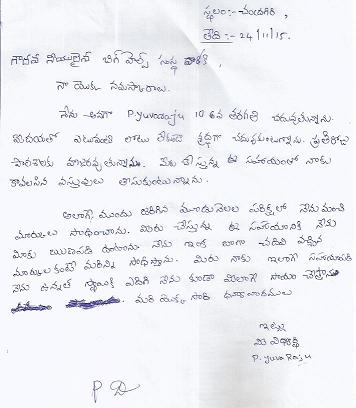 స్థలం:- చంద్రగిరి,
తేది:- 24/11/15.
గౌరవ నీయులైన బిగ్ హెల్ప్ సంస్థ వారికి,
నా యొక్క నమస్కారాలు.
నేను అనగా P.yuvaraju 10 వ తరగతి చదువుతున్నాను.
ఎటువంటి లోటు లేకుండా శ్రద్ధగా చదువుకుంటున్నాను. ప్రతిరోజు
పాఠశాలకు మీరు చేస్తున్న ఈ సహాయంతో నాకు
కావలసిన వస్తువులు తీసుకుంటున్నాను.
అలాగే ముందు జరిగిన మూడునెలల పరీక్షలో నేను మంచి
మార్కులు సాధించాను. మీరు చేస్తున్న ఈ సహాయానికి నేను
మీకు ఋణపడి ఉంటాను నేను ఇంకా బాగా చదివి వచ్చిన
మార్కులకంటే మరిన్ని సాధిస్తాను. మీరు నాకు ఇలాగే సహాయపడి
నేను ఉన్నత స్థాయికి ఎదిగి నేను కూడా మీలాగే సాయం చేస్తాను
మరి యొక్క సారి ధన్యవాదములు
ఇట్లు
మీ విద్యార్థి
P. yuva Raju
P D